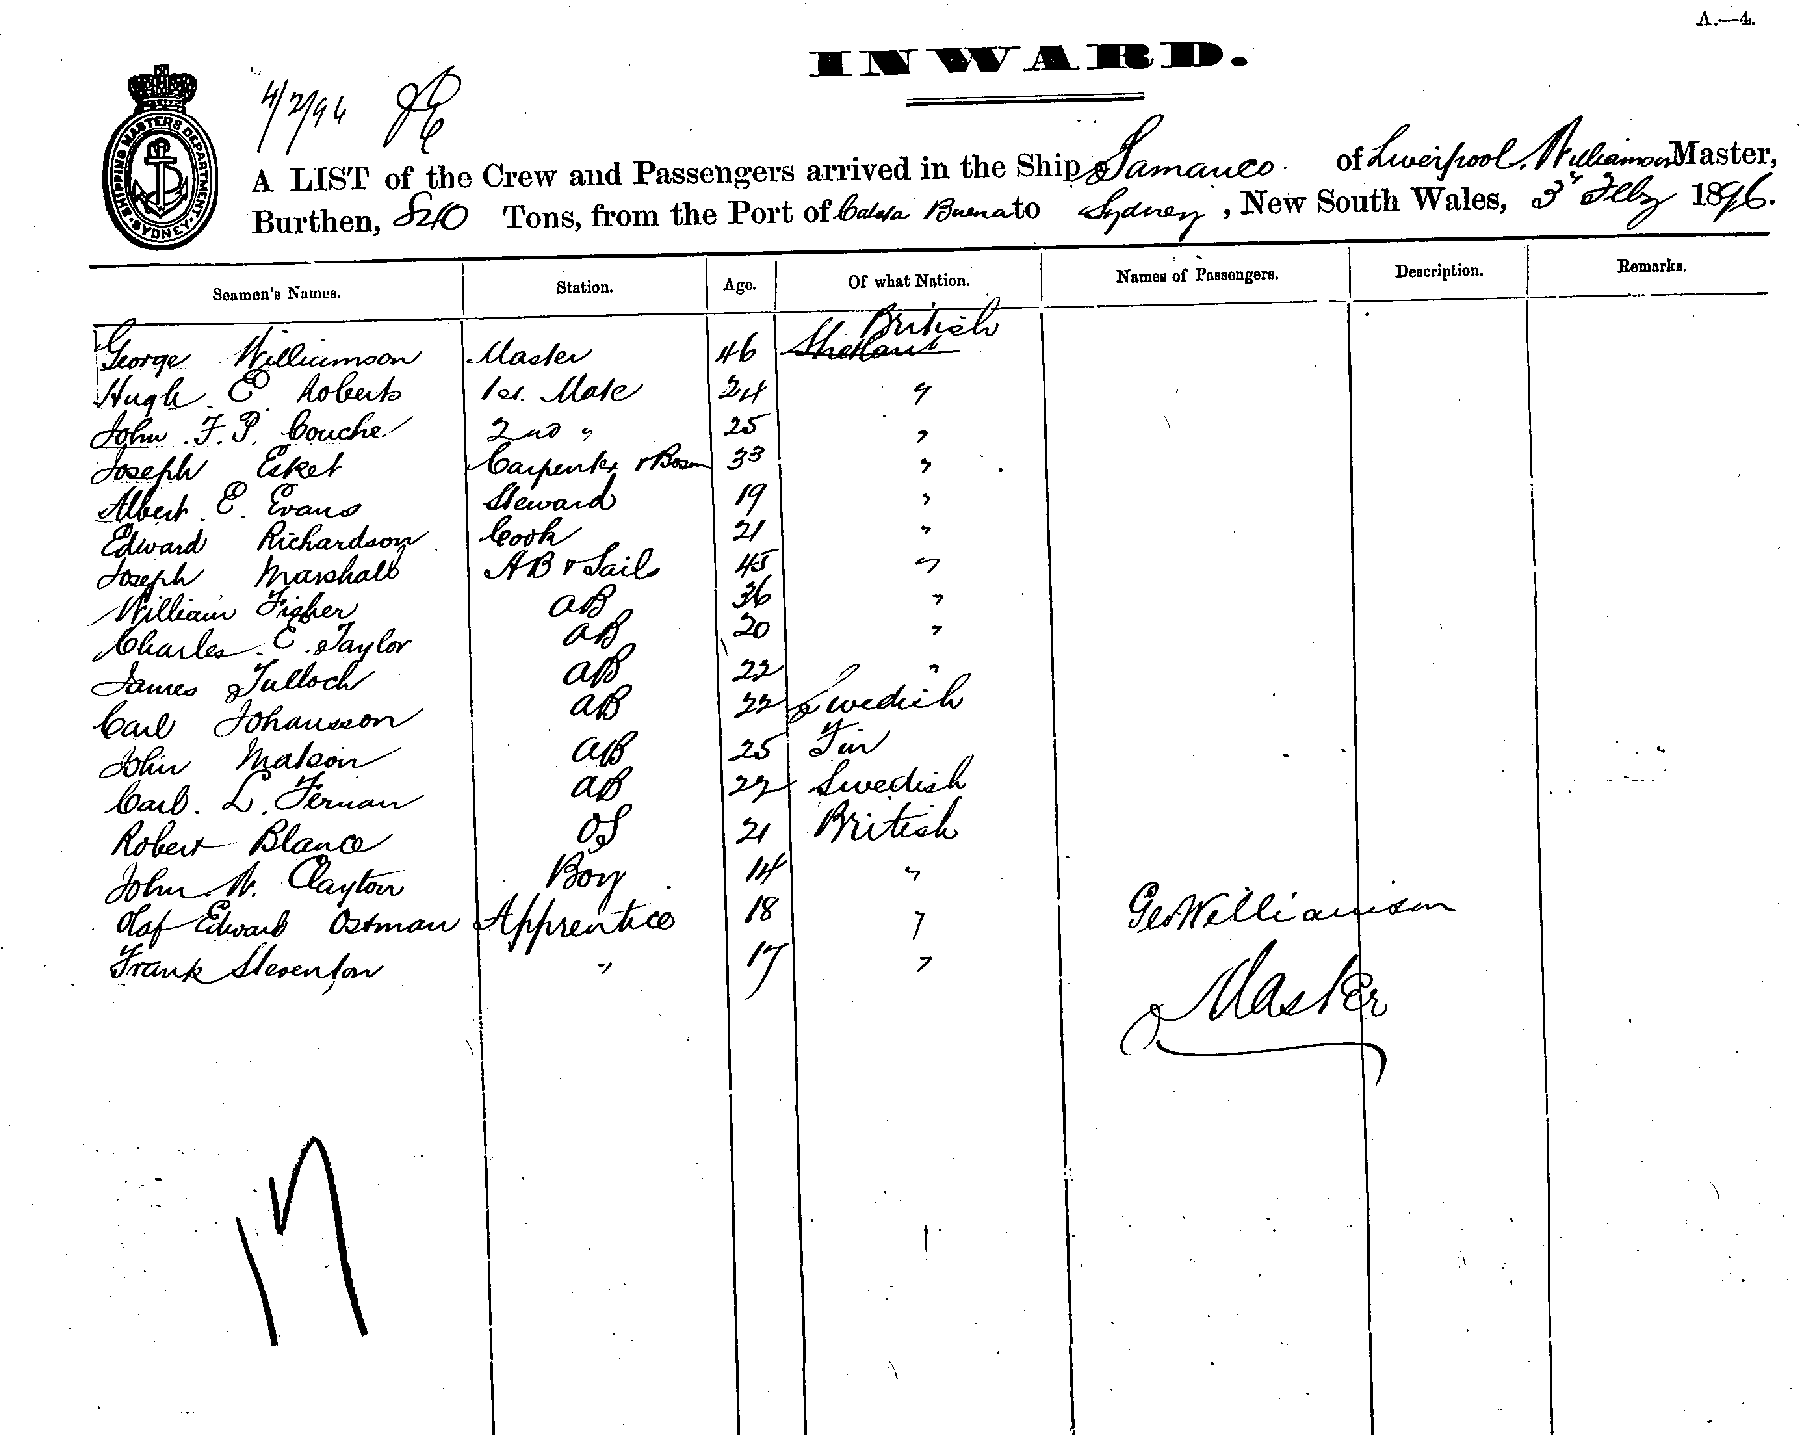 A.—4.
INWARD.
4/2/96
SHIPPING MASTERS DEPARTMENT SYDNEY
A LIST of the Crew and Passengers arrived in the Ship Samanco of Liverpool. Williamson Master,
Burthen, 820 Tons, from the Port of Caleta Buena to Sydney, New South Wales, 3rd Feby 1896.
Seamen's Names. Station. Age. Of what Nation. Names of Passengers. Description. Remarks.
British
George Williamson Master 46 Shetland
Hugh E Roberts 1st. Mate 24 "
John F. P. Couche 2nd " 25 "
Joseph Esket Carpenter & Bosn 33 "
Albert E. Evans Steward 19 "
Edward Richardson Cook 21 "
Joseph Marshall AB & Sails 45 "
William Fisher AB 36 "
Charles E. Taylor AB 20 "
James Tulloch AB 22 "
Carl Johansson AB 22 Swedish
John Matson AB 25 Fin
Carl. L. Fernan AB 22 Swedish
Robert Blance OS 21 British
John W. Clayton Boy 14 "
Olaf Edward Ostman Apprentice 18 "
Frank Steventon " 17 "
Geo Williamson
Master
17